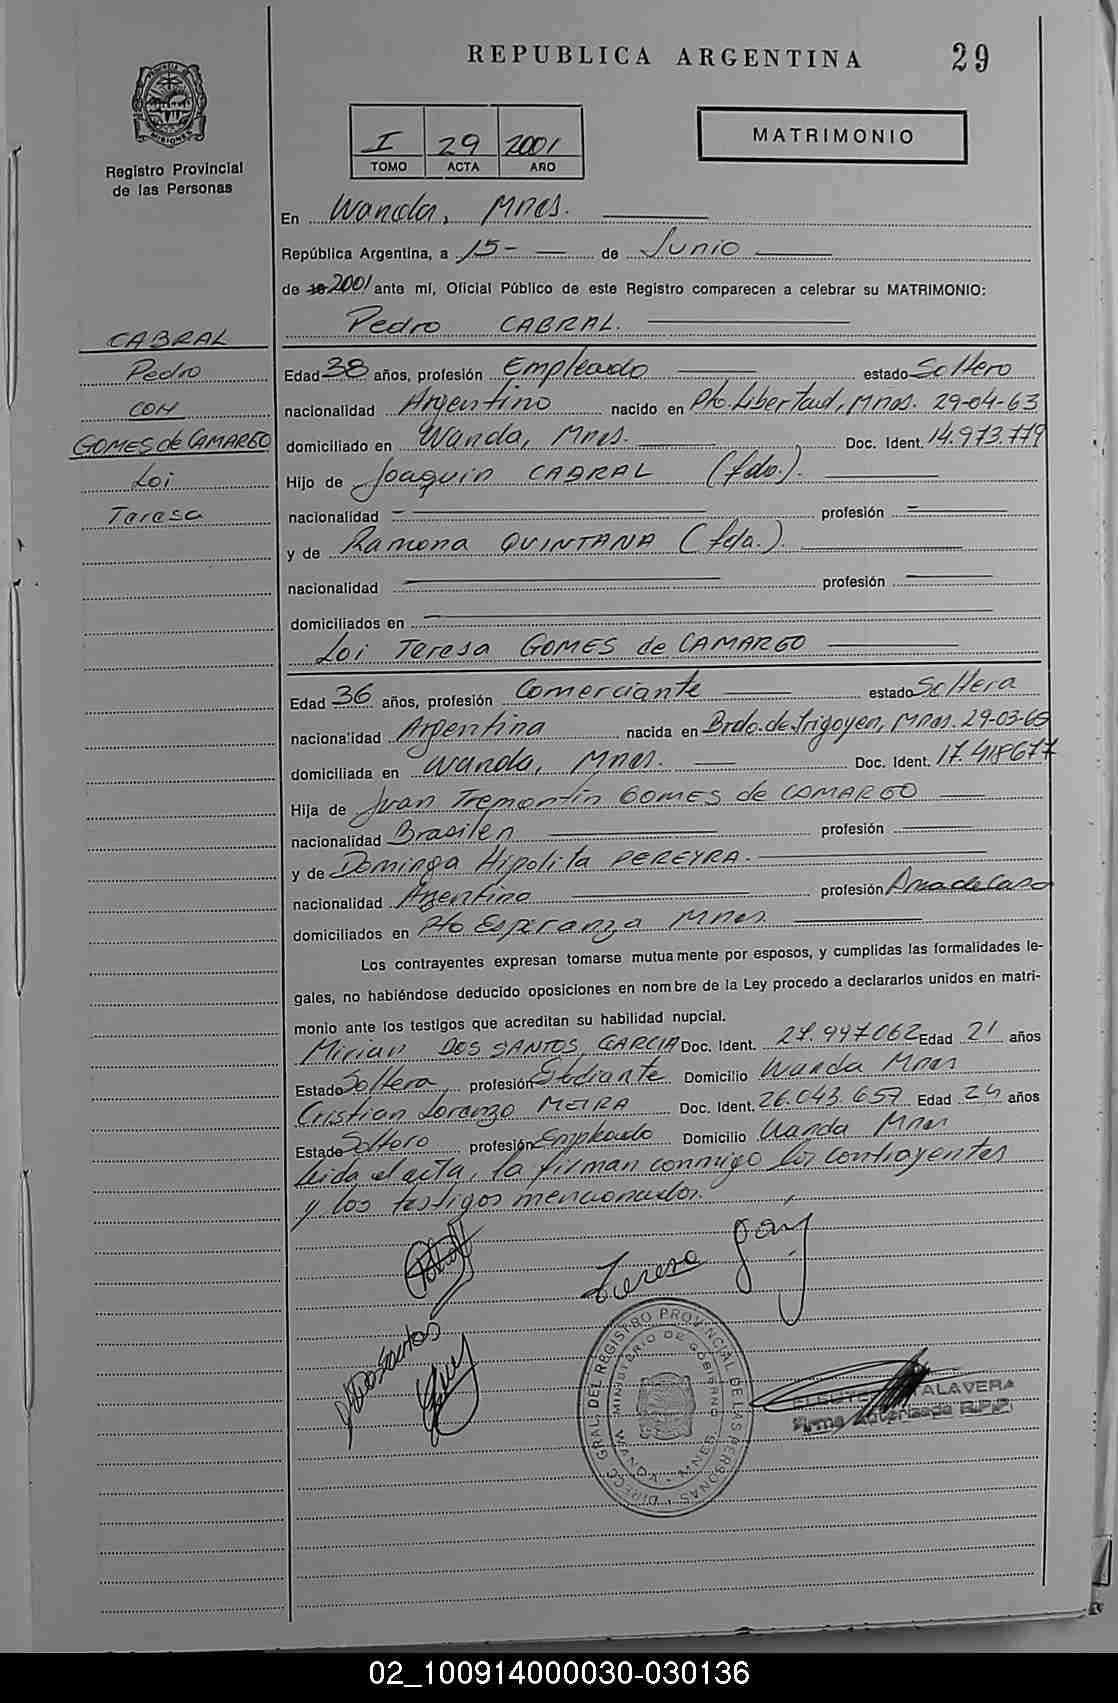 REPUBLICA ARGENTINA 29
Registro Provincial
de las Personas
I 29 2001
TOMO ACTA AÑO
MATRIMONIO
En Wanda, Mnes.
República Argentina, a 15- de Junio
de 19 2001 ante mí, Oficial Público de este Registro comparecen a celebrar su MATRIMONIO:
Pedro CABRAL.
CABRAL
Pedro
CON
GOMES de CAMARGO
Loi
Teresa
Edad 38 años, profesión Empleado estado Soltero
nacionalidad Argentino nacido en Pto. Libertad, Mnes. 29-04-63
domiciliado en Wanda, Mnes. Doc. Ident. 14.973.779
Hijo de Joaquin CABRAL (fdo.).
nacionalidad profesión
y de Ramona QUINTANA (fda.).
nacionalidad profesión
domiciliados en
Loi Teresa GOMES de CAMARGO
Edad 36 años, profesión Comerciante estado Soltera
nacionalidad Argentina nacida en Brdo. de Irigoyen, Mnes. 29-03-65
domiciliada en Wanda, Mnes. Doc. Ident. 17.418677
Hija de Juan Tremontin GOMES de CAMARGO
nacionalidad Brasilen profesión
y de Dominga Hipolita PEREYRA.
nacionalidad Argentino profesión Ama de Casa
domiciliados en Pto Esperanza Mnes.
Los contrayentes expresan tomarse mutuamente por esposos, y cumplidas las formalidades le-
gales, no habiéndose deducido oposiciones en nombre de la Ley procedo a declararlos unidos en matri-
monio ante los testigos que acreditan su habilidad nupcial.
Mirian DOS SANTOS GARCIA Doc. Ident. 27.997.062 Edad 21 años
Estado Soltera profesión Estudiante Domicilio Wanda Mnes
Cristian Lorenzo MEIRA Doc. Ident. 26.043.657 Edad 24 años
Estado Soltero profesión Empleado Domicilio Wanda Mnes
Leida el acta, la firman conmigo los contrayentes
y los testigos mencionados.
Teresa
Dos Santos
DIRECC. GRAL. DEL REGISTRO PROVINCIAL DE LAS PERSONAS
MINISTERIO DE GOBIERNO
WANDA MNES.
TALAVERA
Firma Autorizada R.P.P.
02_100914000030-030136